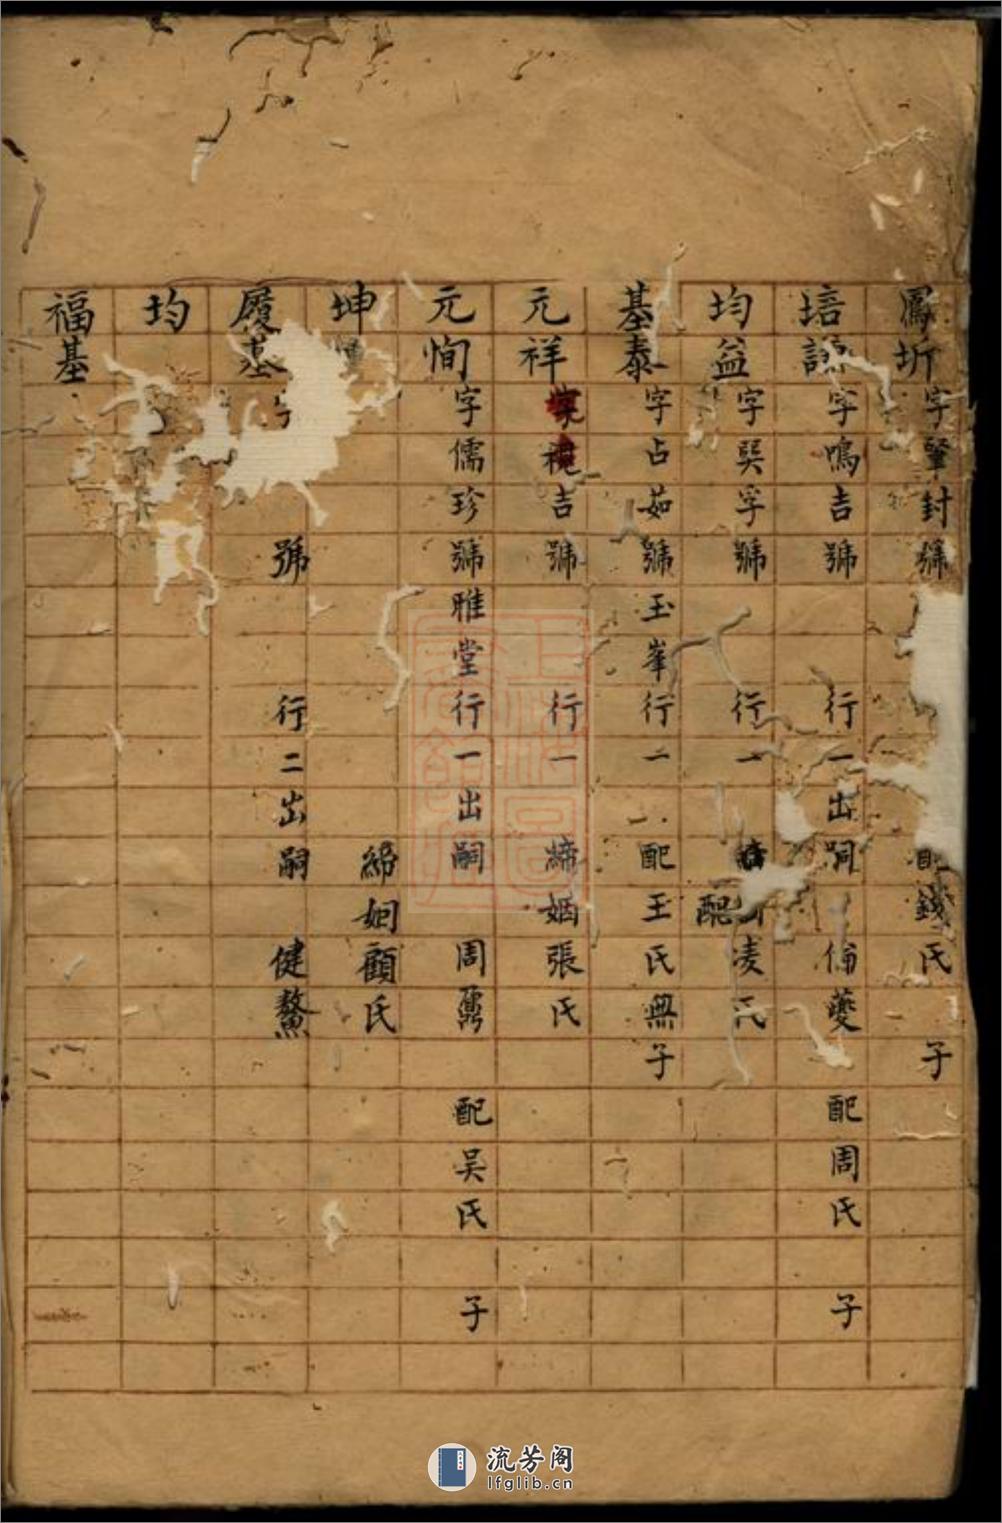 鳳圻字肇封號配錢氏子
培謙字鳴吉號行一出嗣倫夔配周氏子
均益字巽孚號行一配凌氏
基泰字占茹號玉峯行二配王氏無子
元祥字禮吉號行一締姻張氏
元恂字儒珍號雅堂行一出嗣周鼐配吴氏子
坤締姻顧氏
履基字號行二出嗣健鰲
均
福基
流芳阁
lfglib.cn